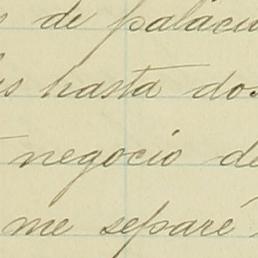 de palacio
hasta dos
negocio de
me separé